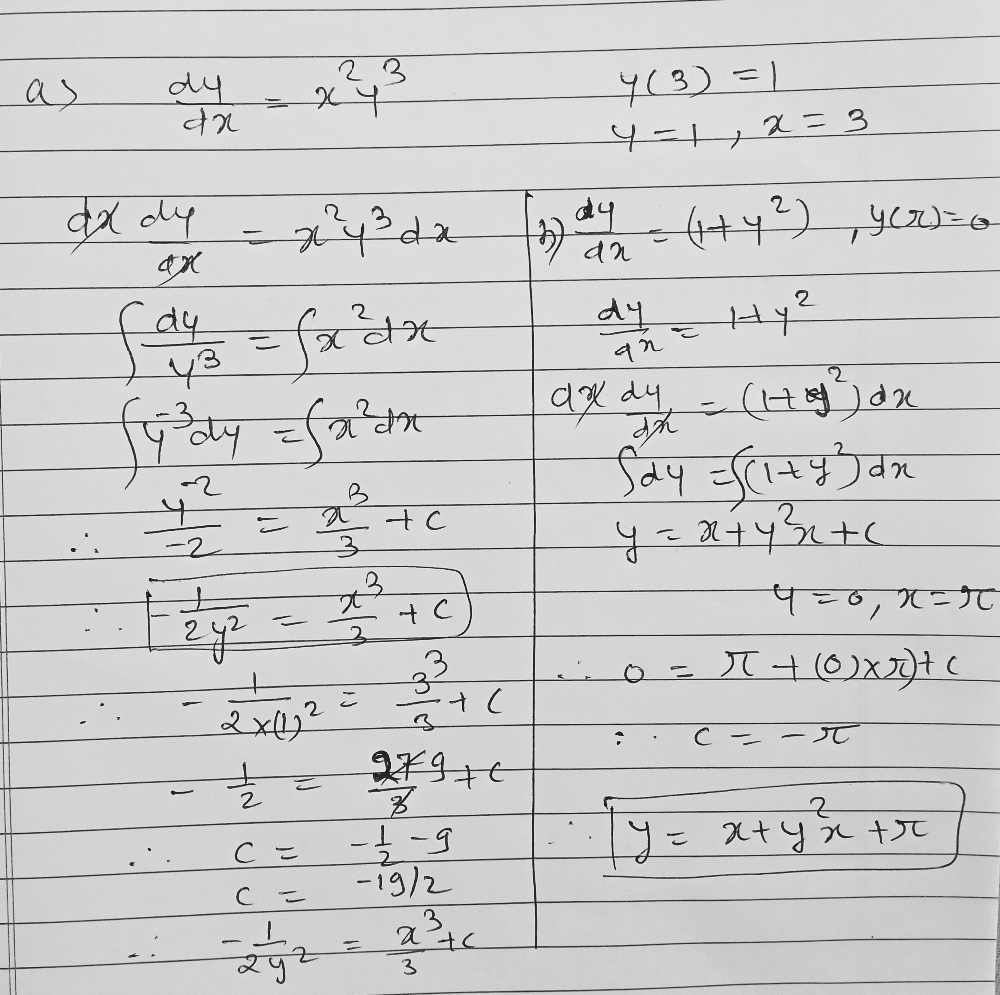 a) dy/dx = x²y³    y(3) = 1
y = 1, x = 3
dx dy/dx = x²y³ dx
∫ dy/y³ = ∫ x² dx
∫ y⁻³ dy = ∫ x² dx
∴ y⁻²/-2 = x³/3 + c
∴ - 1/2y² = x³/3 + c
∴ - 1/2×(1)² = 3³/3 + c
- 1/2 = 27/3 9 + c
∴ c = -1/2 - 9
c = -19/2
∴ - 1/2y² = x³/3 + c
b) dy/dx = (1+y²), y(π) = 0
dy/dx = 1+y²
dx dy/dx = (1+y²) dx
∫ dy = ∫ (1+y²) dx
y = x + y²x + c
y = 0, x = π
∴ 0 = π + (0)×π) + c
∴ c = -π
∴ y = x + y²x + π